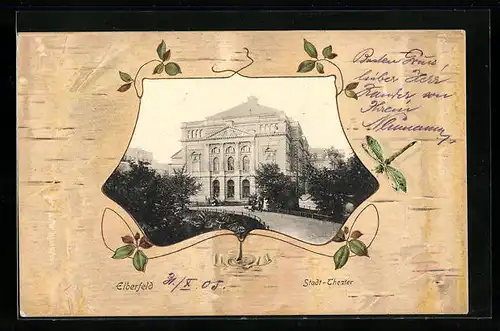 Besten Gruss
lieber Herr
Zander von
Ihrem
Neumann
Elberfeld
31/X 05.
Stadt-Theater